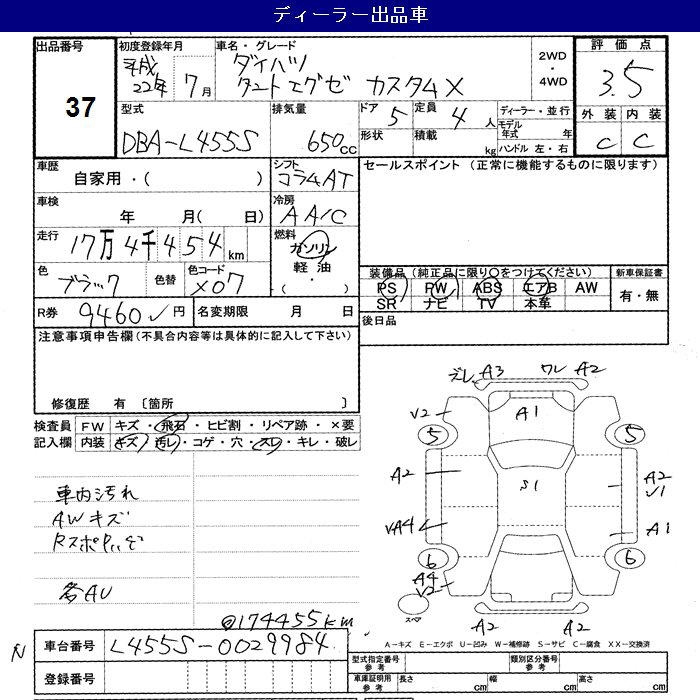 ディーラー出品車
出品番号
37
初度登録年月
平成
22年 7月
車名・グレード
ダイハツ
タントエグゼ カスタムX
2WD
・
4WD
評価点
3.5
外装 内装
C C
型式
DBA-L455S
排気量
650cc
ドア 5
定員 4人
形状
積載 kg
ディーラー・並行
モデル年式 年
ハンドル 左・右
車歴
自家用・( )
シフト
コラムAT
セールスポイント (正常に機能するものに限ります)
車検
年 月( 日)
冷房
AA/C
走行
17万4千454km
燃料
ガソリン
軽油
・( )
色
ブラック
色替
色コード
X07
装備品(純正品に限り○をつけてください)
PS PW ABS エアB AW
SR ナビ TV 本革
新車保証書
有・無
R券 9460円
名変期限 月 日
後日品
注意事項申告欄(不具合内容等は具体的に記入して下さい)
修復歴 有 〔箇所 〕
検査員 FW キズ・飛石・ヒビ割・リペア跡・×要
記入欄 内装 キズ・汚レ・コゲ・穴・スレ・キレ・破レ
車内汚れ
AWキズ
各AU
@174455km
ズレ A3 ワレ A2
A1
V2
5 5
A2
S1
A2
V1
A1
6 6
A4
V2
スペア
A2 A2
A-キズ E-エクボ U-凹み W-補修跡 S-サビ C-腐食 XX-交換済
N
車台番号 L455S-0029984
登録番号
型式指定番号
参考
類別区分番号
参考
車庫証明用
参考
長さ cm 幅 cm 高さ cm